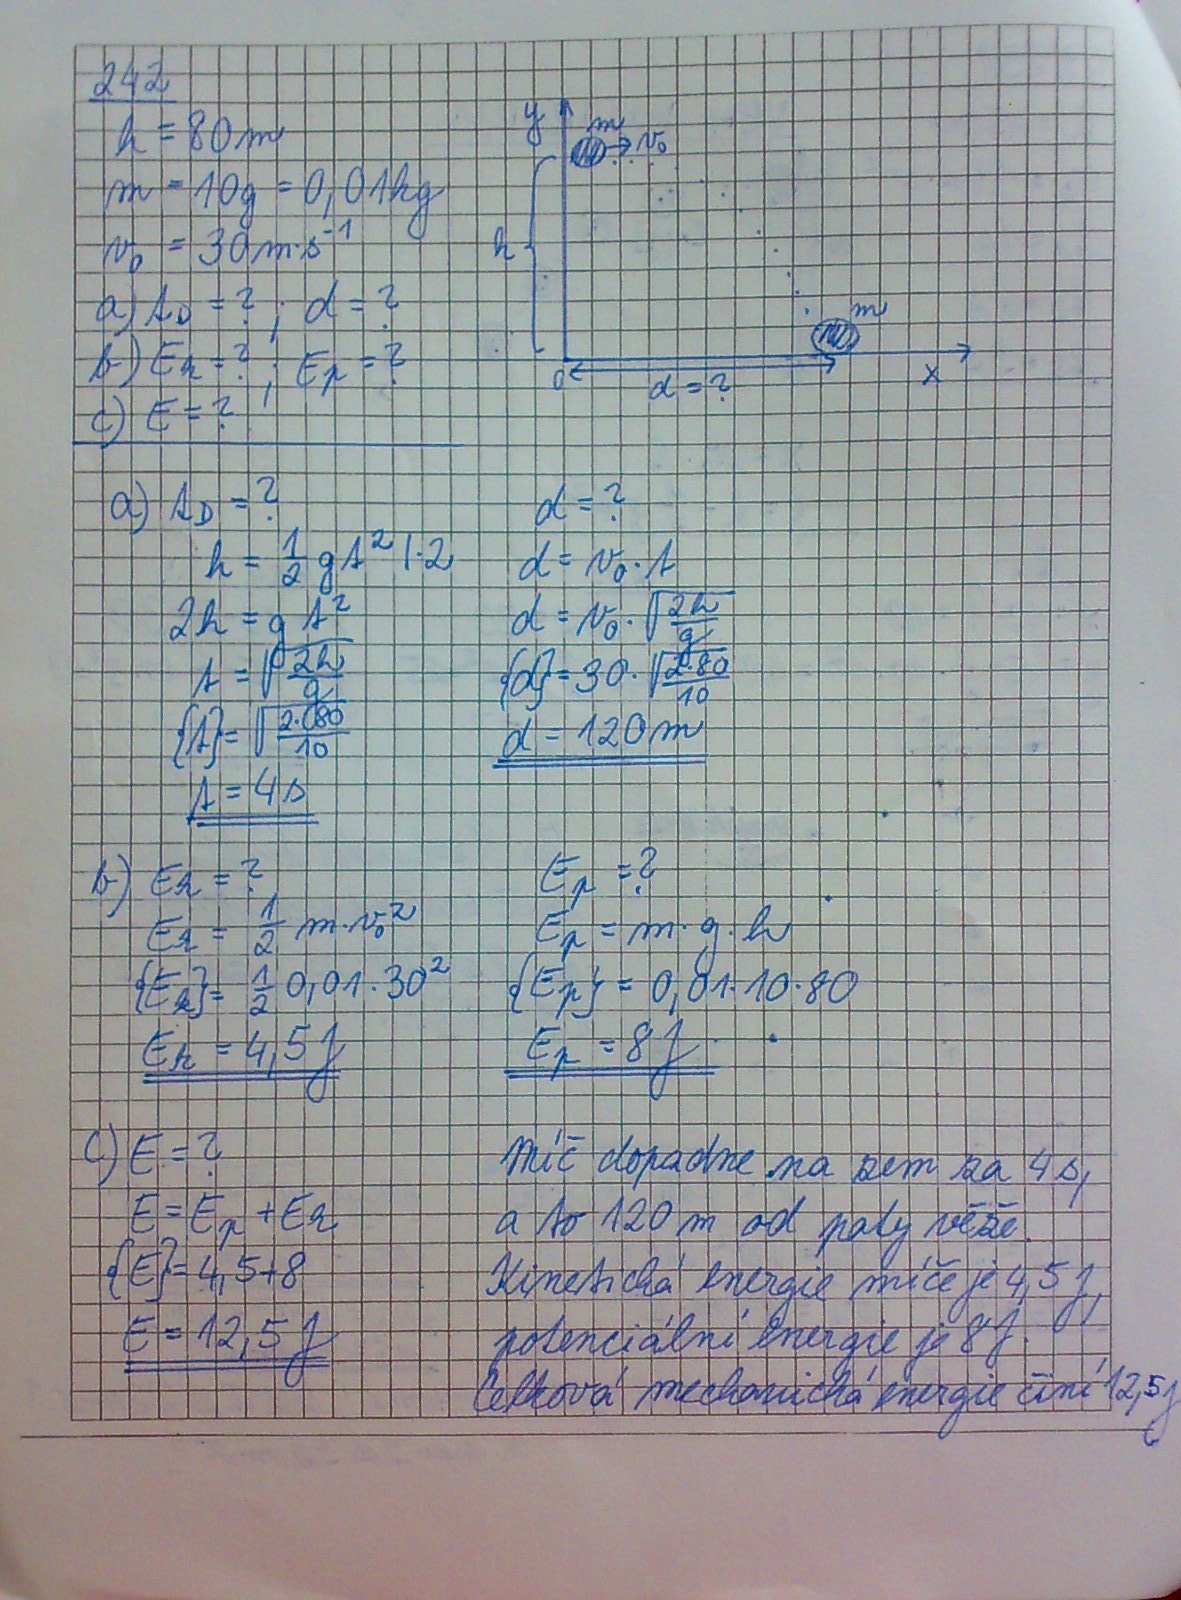 242
h = 80 m
m = 10g = 0,01kg
v₀ = 30 m·s⁻¹
a) t_D = ? ; d = ?
b) E_k = ? ; E_p = ?
c) E = ?
y
m
v₀
h
m
0
d = ?
x
a) t_D = ?
h = 1/2 g t² |·2
2h = g t²
t = √(2h/g)
{t} = √(2·80/10)
t = 4s
d = ?
d = v₀ · t
d = v₀ · √(2h/g)
{d} = 30 · √(2·80/10)
d = 120 m
b) E_k = ?
E_k = 1/2 m·v₀²
{E_k} = 1/2 0,01·30²
E_k = 4,5 J
E_p = ?
E_p = m·g·h
{E_p} = 0,01·10·80
E_p = 8 J
c) E = ?
E = E_p + E_k
{E} = 4,5+8
E = 12,5 J
Míč dopadne na zem za 4s,
a to 120 m od paty věže.
Kinetická energie míče je 4,5 J,
potenciální energie je 8 J.
Celková mechanická energie činí 12,5 J